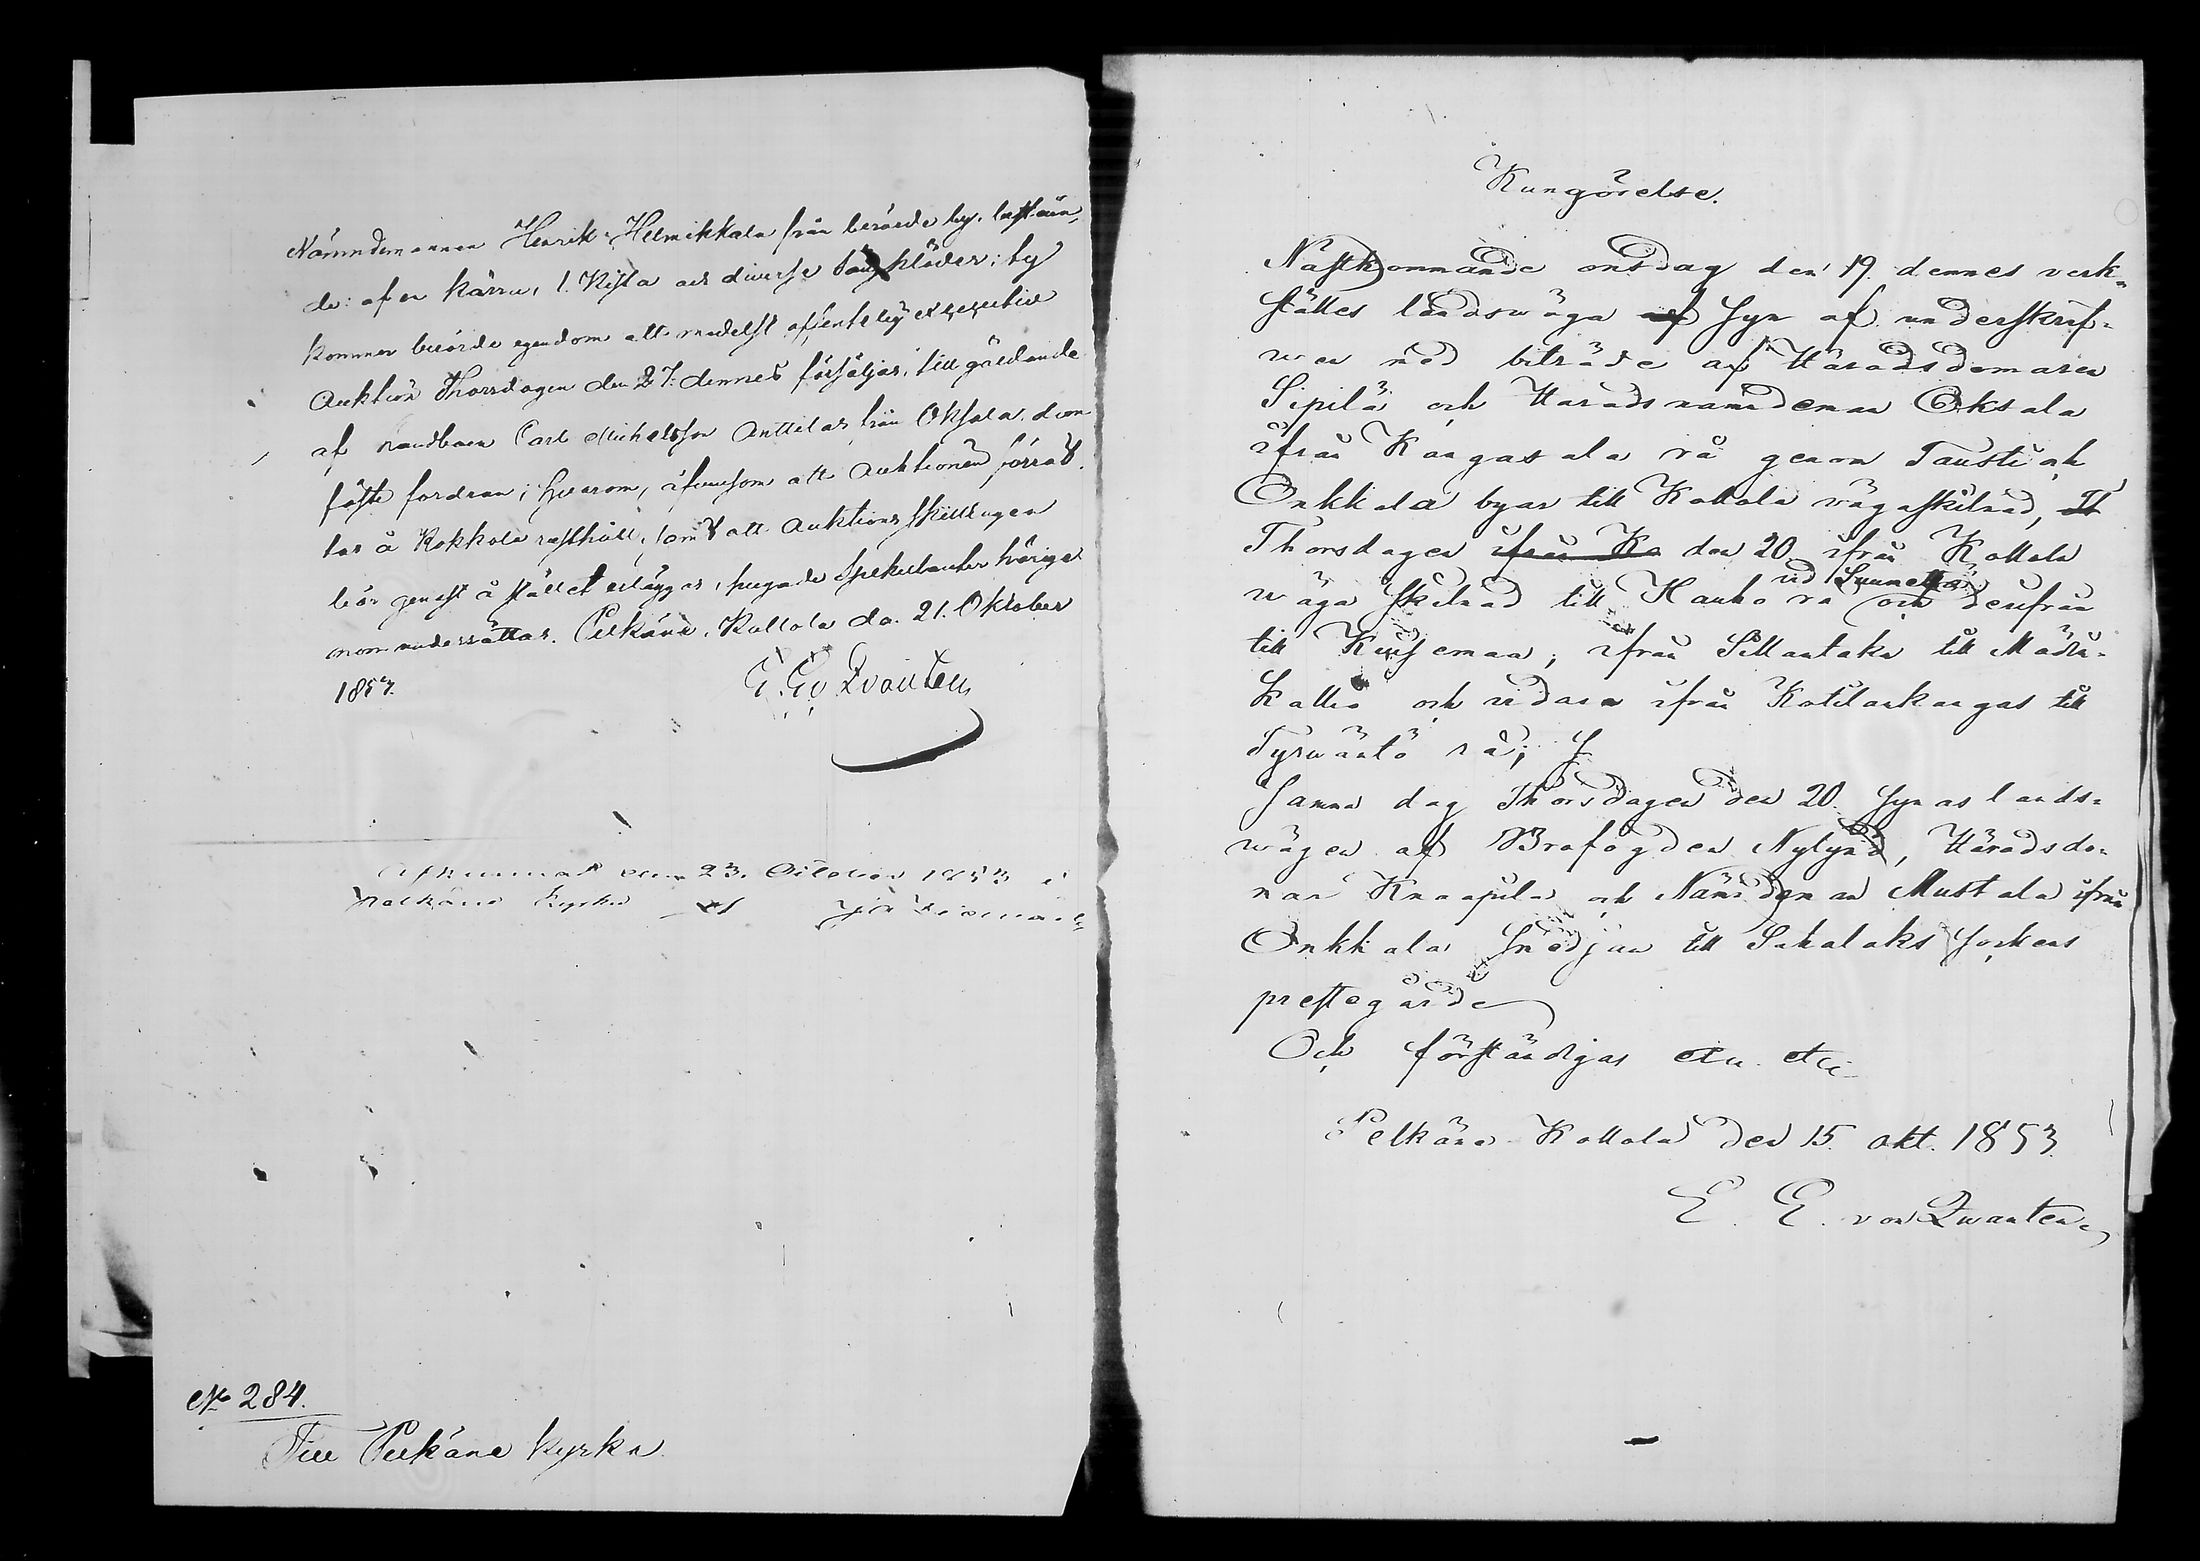 Nämndemannen Henrik Helmikkala från berörde by, bestäen¬
de: af en kärra, 1. Kista och diverse Gångkläder; ty
kommer berörde egendom att medelst offentelig exequtive
Auktion Thorsdagen den 27. dennes försäljas, till gäldande
af randboen Carl Michelsson Anttilas från Oksala, dom
fäste fordran; hvarom, äfvensom att Auktionen förrät¬
tas å Kokkola rasthåll, samt att Auktions skillingen
bör genast å stället erläggas, hugade Spekulanter härige¬
nom underrättas. Pelkäne, Kollola da. 21. Oktober
1853.
E. E. v Qvanten
Afkunnat den 23. October 1853 i
Pelkäne Kyrka af
No 284.
Till Pelkäne kyrka.
Kungörelse.
Nästkommande onsdag den 19. dennes verk¬
ställes landsväga af syn af underskrif¬
wen med biträde af Häradsdomaren
Sipilä och Häradsnämndeman Oksala
ifrån Kangasala rå genom Tausti och
Onkkala byar till Kollola vägaskilnad, Th
Thorsdagen ifrån Ko den 20 ifrån Kollola
wäga skilnad till Hauho rå vid och derifrån
till Kuisemaa, ifrån Sillantaka till
kallio och vidare ifrån Kotilankangas till
Tyrwäntö rå; S
samma dag Thorsdagen den 20. synas lands¬
wägen af Brofogden Nylynd, Häradsdo¬
mar Knaapila och Nämndeman Mustala ifrån
Onkkala smedjan till Sahalaks sockens
prestegårde
Och förständigas etc. etc
Pelkäne Kollola den 15 okt. 1853.
E. E. von Qwanten